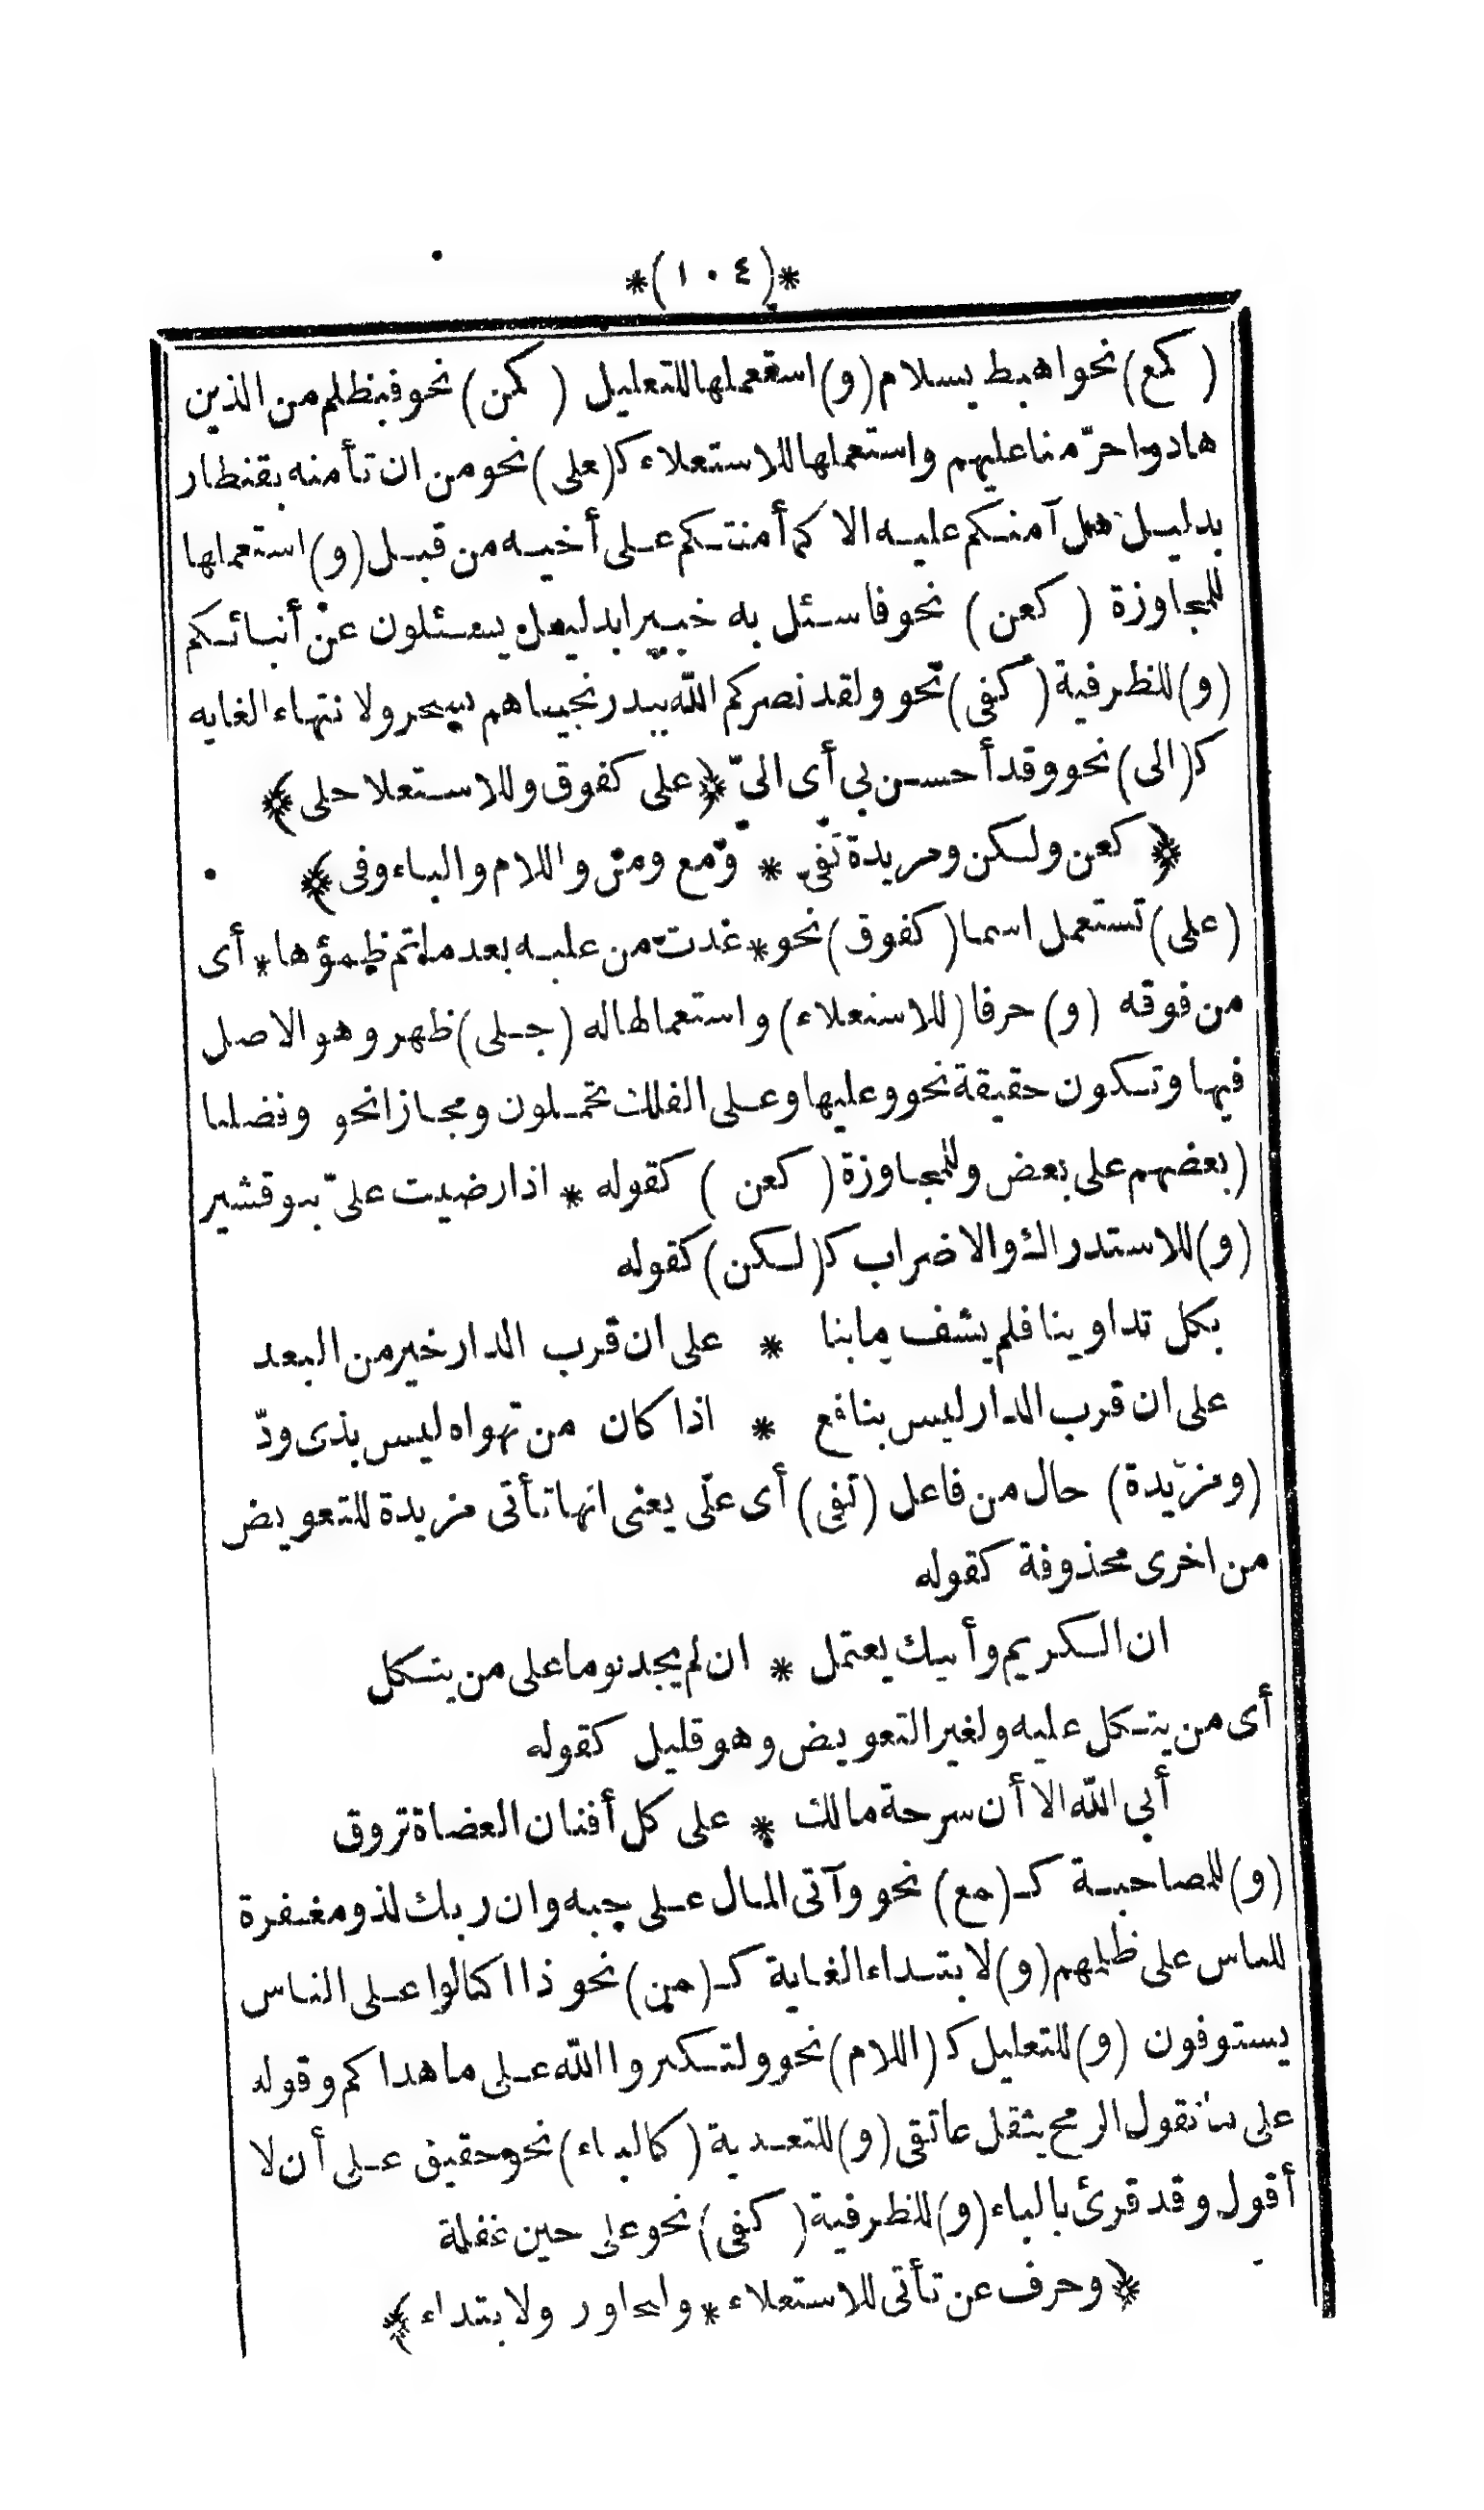 *(١٠٤)*
(كمع) نحو اهبط بسلام (و) استعملها للتعليل (كمن) نحو فبظلم من الذين
هادوا حرّمنا عليهم واستعملها للاستعلاء كـ(على) نحو من ان تأمنه بقنطار
بدليل هل آمنكم عليه الا كما أمنتكم على أخيه من قبل (و) استعملها
للمجاوزة (كعن) نحو فاسئل به خبيرا بدليل يسئلون عن أنبائكم
(و) للظرفية (كفى) نحو ولقد نصركم الله ببدر نجيناهم بسحر ولا نتهاء الغايه
كـ(الى) نحو وقد أحسن بي أى اليّ ﴿على كفوق وللاستعلا جلى﴾
﴿كعن ولكن ومزيدة تفى * ومع ومن واللام والباء وفى﴾
(على) تستعمل اسما (كفوق) نحو * غدت من عليه بعد ما تم ظمؤها * أى
من فوقه (و) حرفا (للاستعلاء) واستعمالها له (جلى) ظهر وهو الاصل
فيها وتكون حقيقة نحو وعليها وعلى الفلك تحملون ومجازا نحو وفضلنا
(بعضهم على بعض وللمجاوزة (كعن) كقوله * اذا رضيت علىّ بنو قشير
(و) للاستدراك والاضراب كـ(لكن) كقوله
بكل تداوينا فلم يشف ما بنا * على ان قرب الدار خير من البعد
على ان قرب الدار ليس بنافع * اذا كان من تهواه ليس بذى ودّ
(ومزيدة) حال من فاعل (تفى) أى على يعنى انها تأتى مزيدة للتعويض
من اخرى محذوفة كقوله
ان الكريم وأبيك يعتمل * ان لم يجد نوما على من يتكل
أى من يتكل عليه ولغير التعويض وهو قليل كقوله
أبى الله الا أن سرحة مالك * على كل أفنان العضاة تروق
(و) للمصاحبة كـ(مع) نحو وآتى المال على حبه وان ربك لذو مغفرة
للناس على ظلمهم (و) لابتداء الغاية كـ(من) نحو ذا اكتالوا على الناس
يستوفون (و) للتعليل كـ(اللام) نحو ولتكبروا الله على ما هداكم وقوله
على تقول الرمح يثقل عاتقى (و) للتعدية (كالباء) نحو حقيق على أن لا
أقول وقد قرئ بالباء (و) للظرفية (كفى) نحو على حين غفلة
﴿وحرف عن تأتى للاستعلاء * ولابتداء﴾